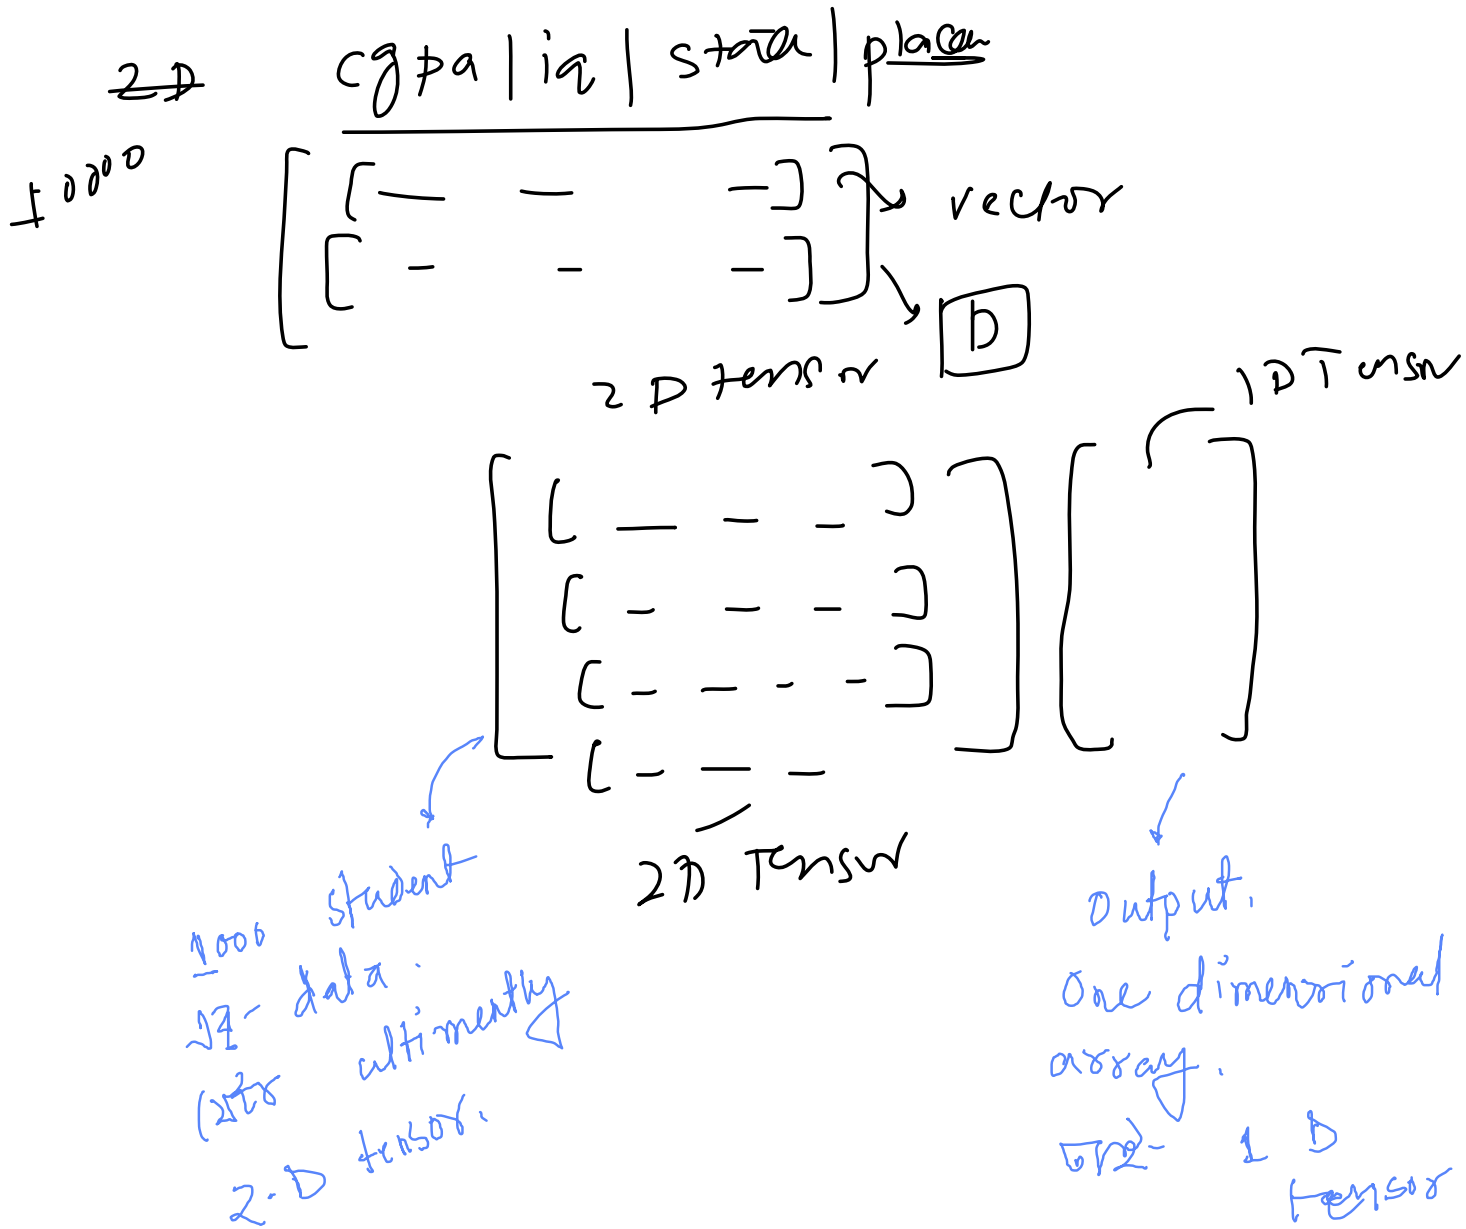 2D
cgpa | iq | state | placem
10000
vector
D
2D tensor
1D Tensor
2D Tensor
1000 student
data.
ultimently
2-D tensor.
output.
One dimensional
array.
1 D
tensor